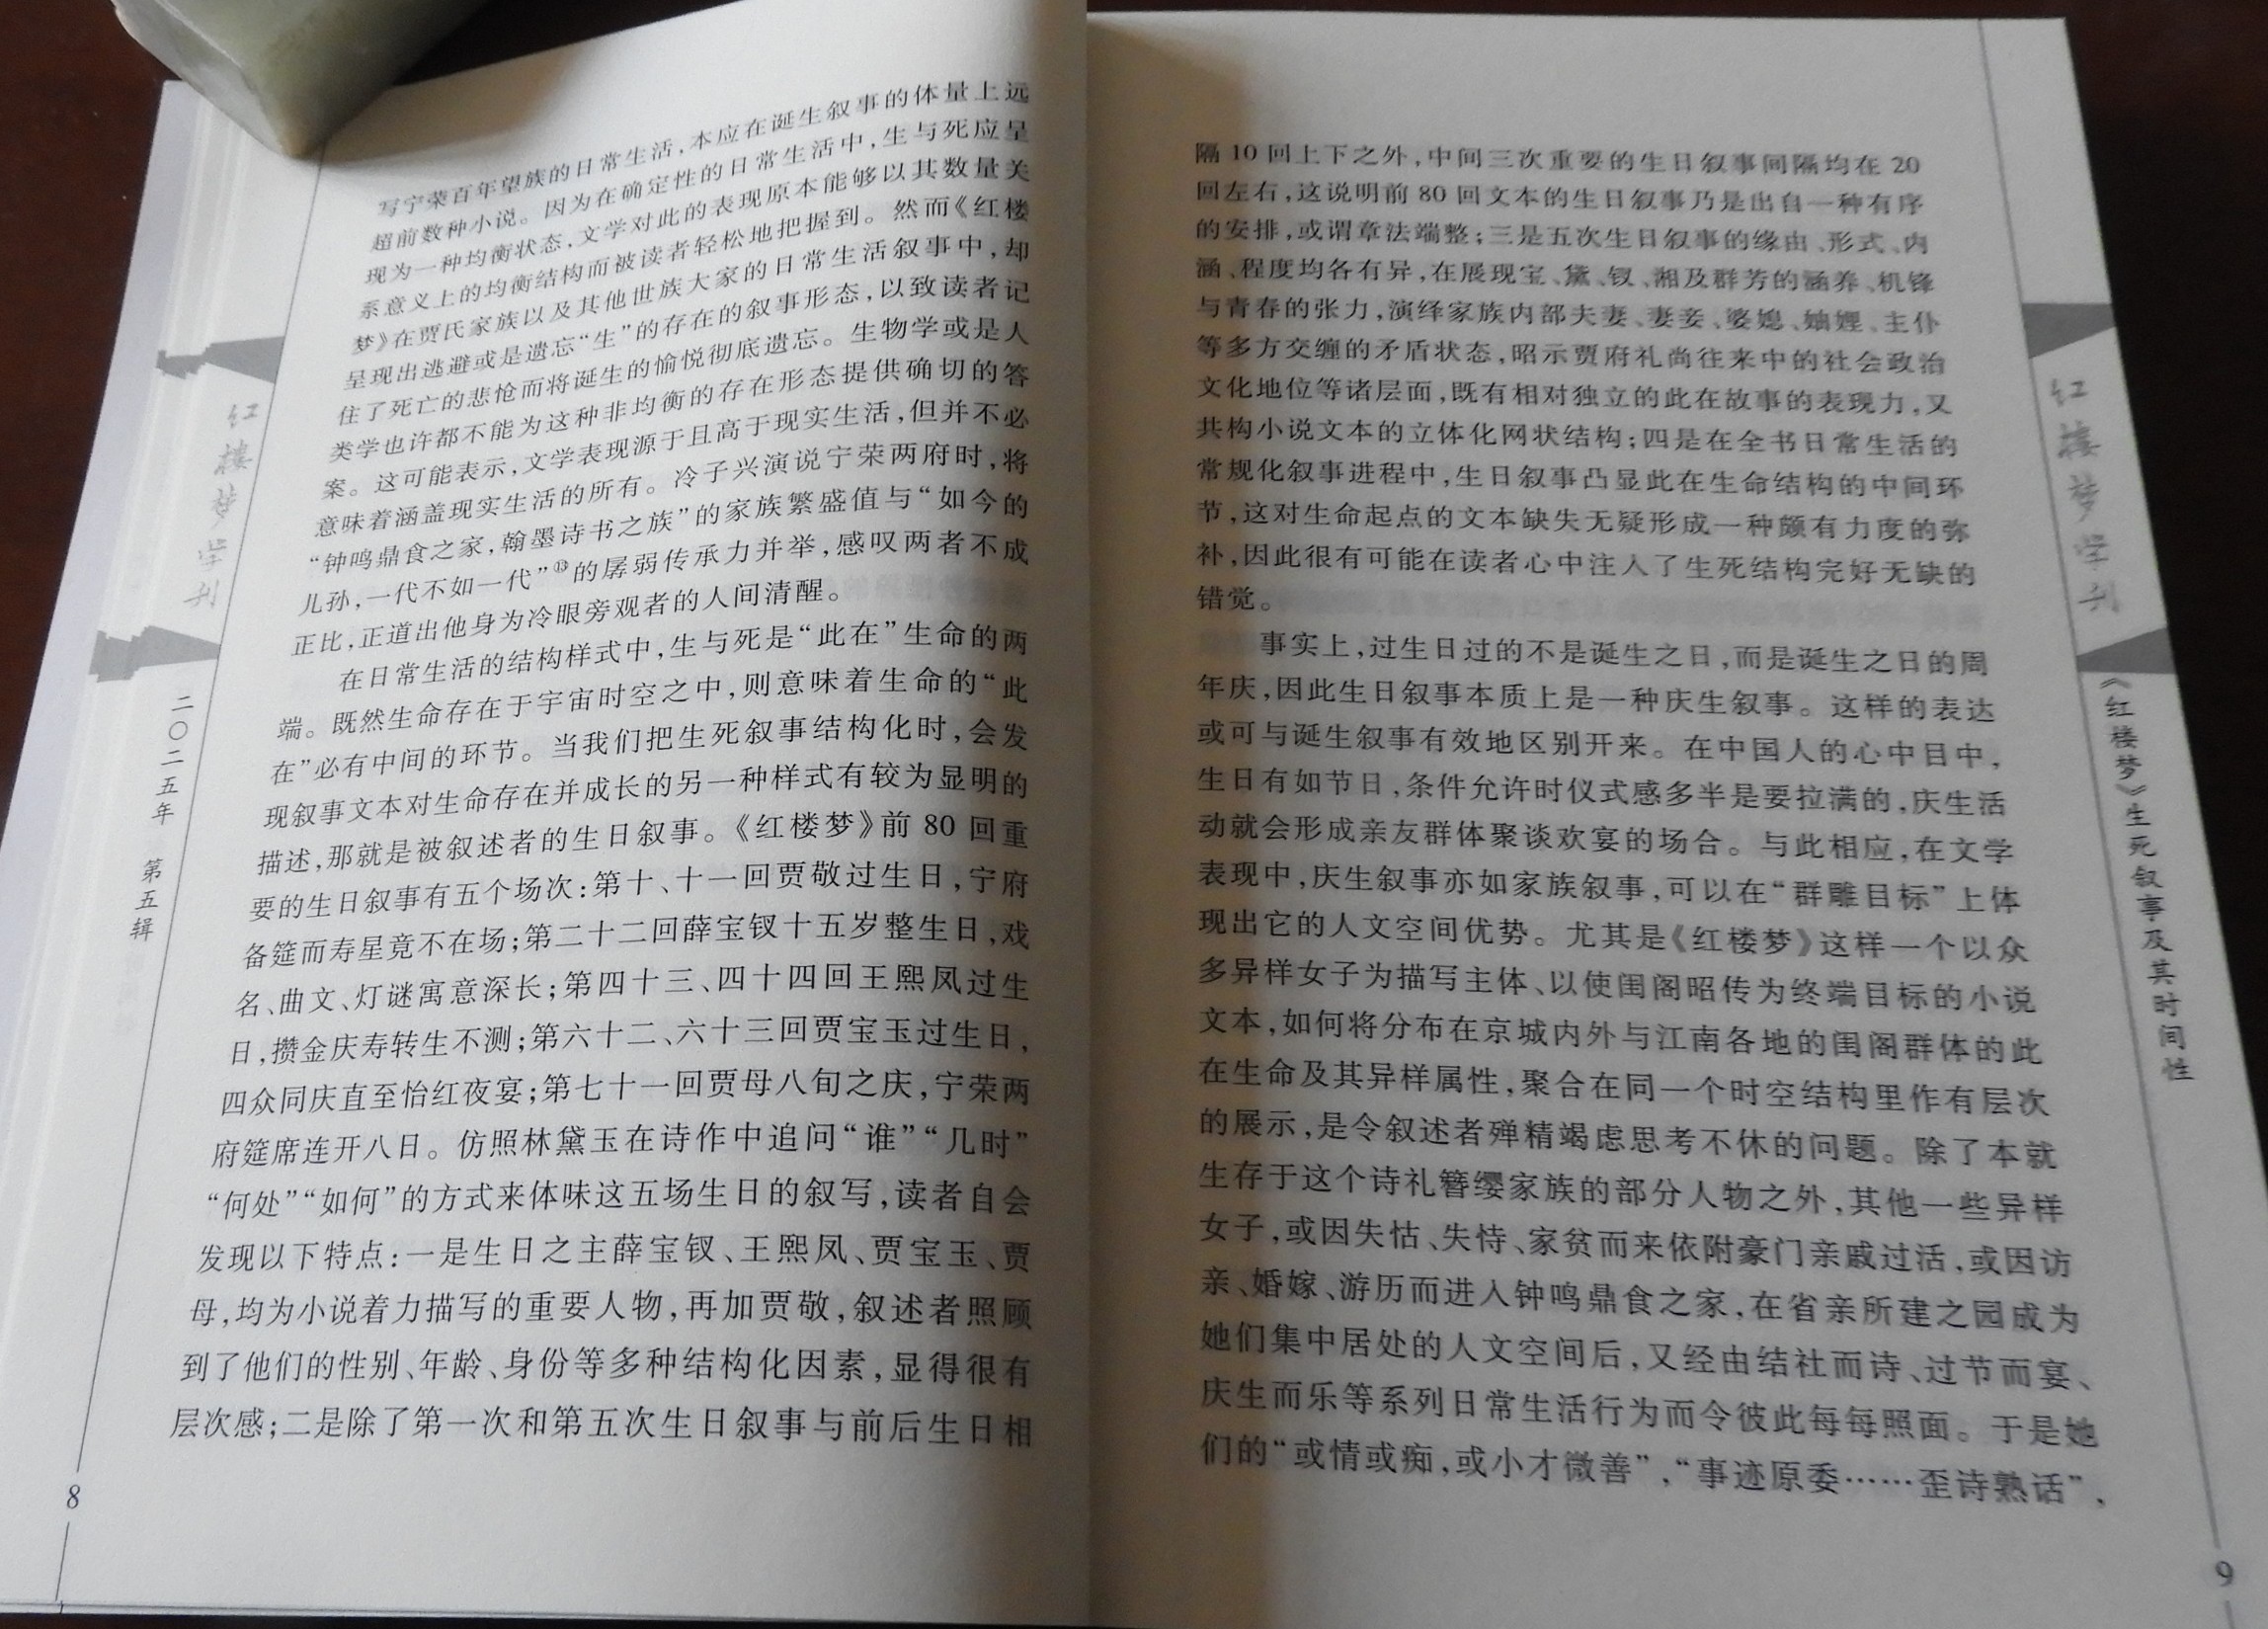 写宁荣百年望族的日常生活,本应在诞生叙事的体量上远
超前数种小说。因为在确定性的日常生活中,生与死应呈
现为一种均衡状态,文学对此的表现原本能够以其数量关
系意义上的均衡结构而被读者轻松地把握到。然而《红楼
梦》在贾氏家族以及其他世族大家的日常生活叙事中,却
呈现出逃避或是遗忘“生”的存在的叙事形态,以致读者记
住了死亡的悲怆而将诞生的愉悦彻底遗忘。生物学或是人
类学也许都不能为这种非均衡的存在形态提供确切的答
案。这可能表示,文学表现源于且高于现实生活,但并不必
意味着涵盖现实生活的所有。冷子兴演说宁荣两府时,将
“钟鸣鼎食之家,翰墨诗书之族”的家族繁盛值与“如今的
儿孙,一代不如一代”⑬的孱弱传承力并举,感叹两者不成
正比,正道出他身为冷眼旁观者的人间清醒。
在日常生活的结构样式中,生与死是“此在”生命的两
端。既然生命存在于宇宙时空之中,则意味着生命的“此
在”必有中间的环节。当我们把生死叙事结构化时,会发
现叙事文本对生命存在并成长的另一种样式有较为显明的
描述,那就是被叙述者的生日叙事。《红楼梦》前 80 回重
要的生日叙事有五个场次:第十、十一回贾敬过生日,宁府
备筵而寿星竟不在场;第二十二回薛宝钗十五岁整生日,戏
名、曲文、灯谜寓意深长;第四十三、四十四回王熙凤过生
日,攒金庆寿转生不测;第六十二、六十三回贾宝玉过生日,
四众同庆直至怡红夜宴;第七十一回贾母八旬之庆,宁荣两
府筵席连开八日。仿照林黛玉在诗作中追问“谁”“几时”
“何处”“如何”的方式来体味这五场生日的叙写,读者自会
发现以下特点:一是生日之主薛宝钗、王熙凤、贾宝玉、贾
母,均为小说着力描写的重要人物,再加贾敬,叙述者照顾
到了他们的性别、年龄、身份等多种结构化因素,显得很有
层次感;二是除了第一次和第五次生日叙事与前后生日相
红楼梦学刊
二〇二五年 第五辑
8
隔 10 回上下之外,中间三次重要的生日叙事间隔均在 20
回左右,这说明前 80 回文本的生日叙事乃是出自一种有序
的安排,或谓章法端整;三是五次生日叙事的缘由、形式、内
涵、程度均各有异,在展现宝、黛、钗、湘及群芳的涵养、机锋
与青春的张力,演绎家族内部夫妻、妻妾、婆媳、妯娌、主仆
等多方交缠的矛盾状态,昭示贾府礼尚往来中的社会政治
文化地位等诸层面,既有相对独立的此在故事的表现力,又
共构小说文本的立体化网状结构;四是在全书日常生活的
常规化叙事进程中,生日叙事凸显此在生命结构的中间环
节,这对生命起点的文本缺失无疑形成一种颇有力度的弥
补,因此很有可能在读者心中注入了生死结构完好无缺的
错觉。
事实上,过生日过的不是诞生之日,而是诞生之日的周
年庆,因此生日叙事本质上是一种庆生叙事。这样的表达
或可与诞生叙事有效地区别开来。在中国人的心中目中,
生日有如节日,条件允许时仪式感多半是要拉满的,庆生活
动就会形成亲友群体聚谈欢宴的场合。与此相应,在文学
表现中,庆生叙事亦如家族叙事,可以在“群雕目标”上体
现出它的人文空间优势。尤其是《红楼梦》这样一个以众
多异样女子为描写主体、以使闺阁昭传为终端目标的小说
文本,如何将分布在京城内外与江南各地的闺阁群体的此
在生命及其异样属性,聚合在同一个时空结构里作有层次
的展示,是令叙述者殚精竭虑思考不休的问题。除了本就
生存于这个诗礼簪缨家族的部分人物之外,其他一些异样
女子,或因失怙、失恃、家贫而来依附豪门亲戚过活,或因访
亲、婚嫁、游历而进入钟鸣鼎食之家,在省亲所建之园成为
她们集中居处的人文空间后,又经由结社而诗、过节而宴、
庆生而乐等系列日常生活行为而令彼此每每照面。于是她
们的“或情或痴,或小才微善”,“事迹原委……歪诗熟话”,
红楼梦学刊
《红楼梦》生死叙事及其时间性
9